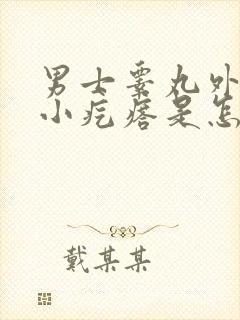 男士睾丸外
小疙瘩是怎
戴某某